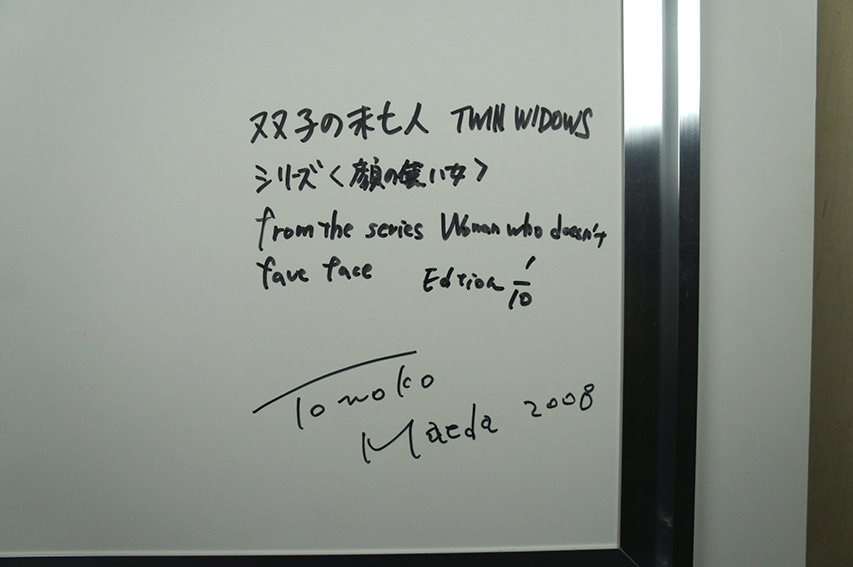 双子の未亡人 TWIN WIDOWS
シリーズ〈顔の無い女〉
from the series Woman who doesn't
fave face Edition 1/10
Tomoko
Maeda 2008